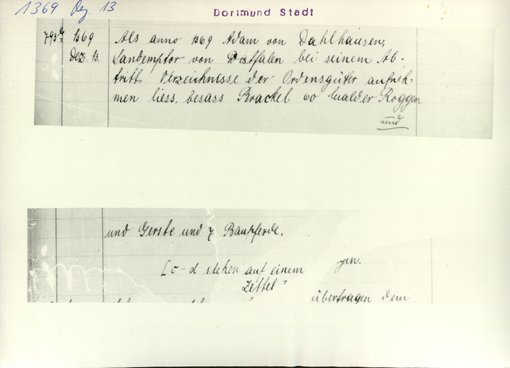 1369 Dez 13
Dortmund Stadt
793d 1369 Als anno 1369 Adam von Dahlhausen,
Dez. 13. Landcomptor von Westfalen bei seinem Ab-
tritt Verzeichnisse der Ordensgüter aufneh-
men liess, besass Brackel 60 Malder Roggen
und
und Gerste und 7 Baupferde.
[c-d stehen auf einem
Zettel
übertragen dem